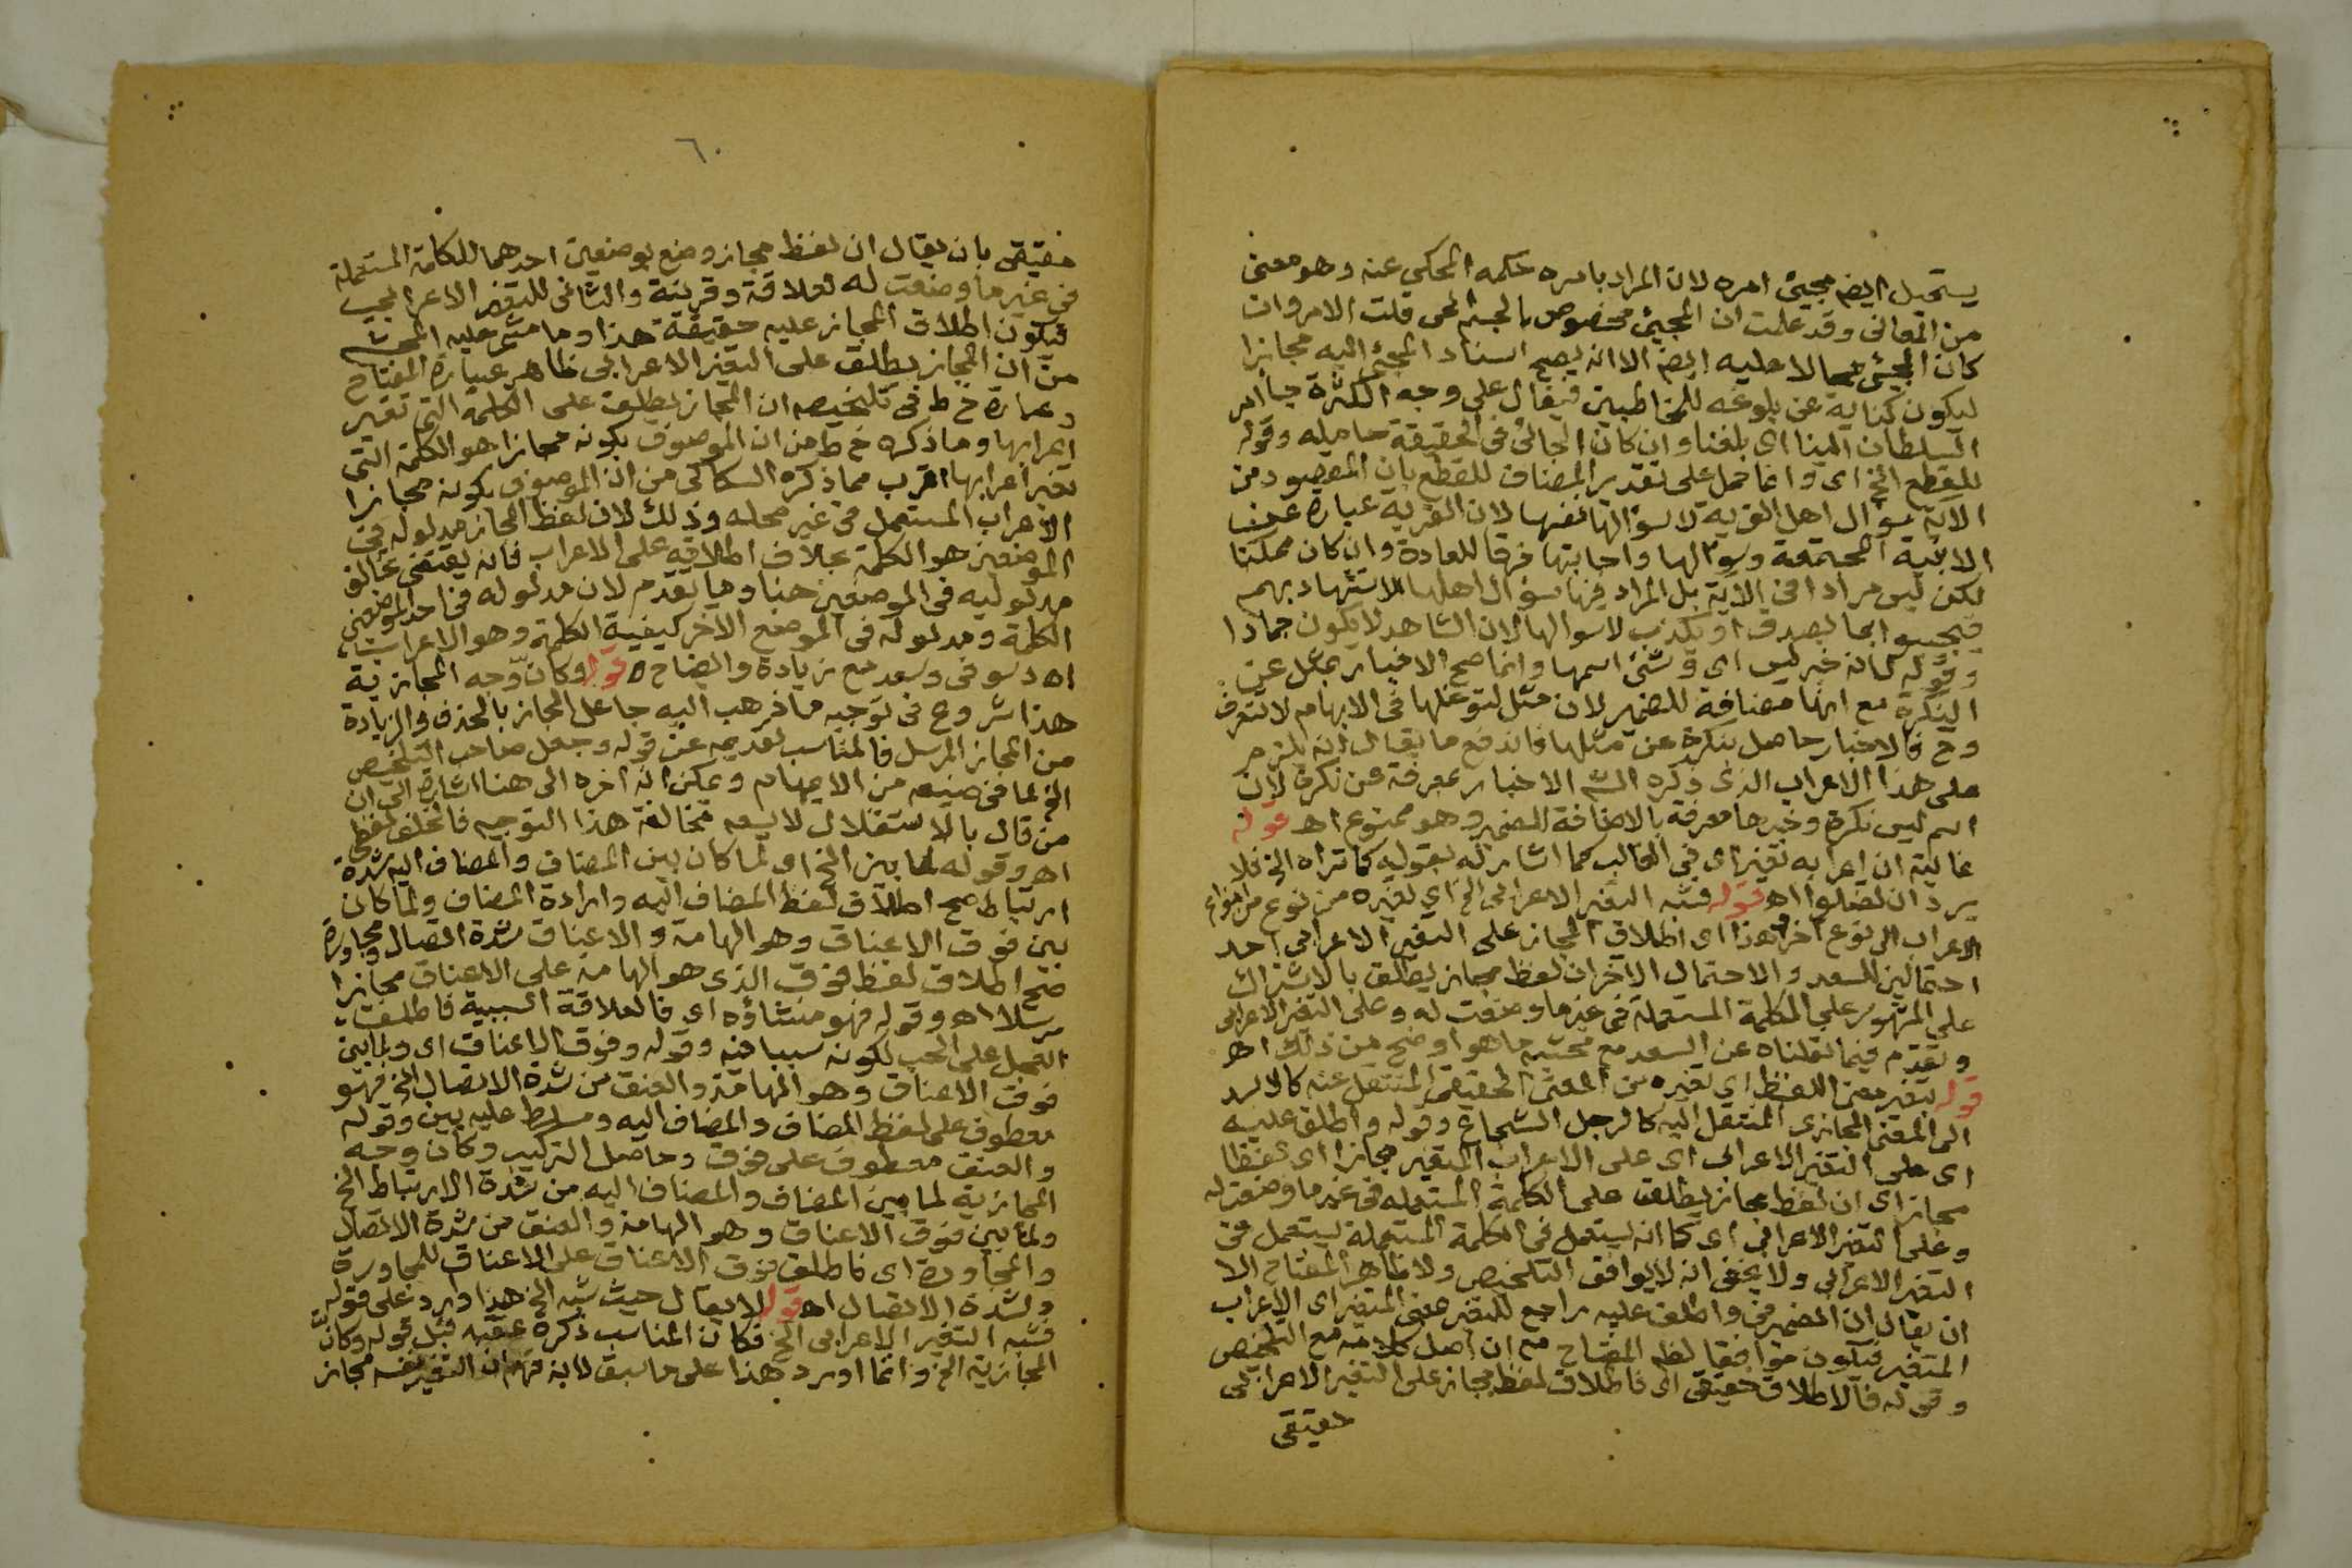 يستحيل ايض مجيئ امره لان المراد بامره حكمه المحكي عنه وهو معنى
من المعانى وقد علمت ان المجيئ مخصوص بالجسم الحى قلت الامر وان
كان المجيئ محالا عليه ايض الا انه يصح اسناد المجيئ اليه مجازا
ليكون كناية عن بلوغه للمخاطبين فيقال على وجه الكثرة جا امر
السلطان الينا اى بلغنا وان كان الجائى فى الحقيقة حامله وقوله
للقطع الخ اى وانما حمل على تقدير المضاف للقطع بان المقصود من
الاية سؤال اهل القرية لا سؤالها نفسها لان القرية عبارة عن
الابنية المجتمعة وسؤالها واجابتها خرقا للعادة وان كان ممكنا
لكن ليس مرادا فى الاية بل المراد فيها سؤال اهلها للاستشهاد بهم
فيجيبوا بما يصدق او يكذب لا سوالها لان الشاهد لا يكون جمادا
وقوله لانه خبر ليس اى وشئ اسمها وانما صح الاخبار بمثل عن
النكرة مع انها مضافة للضمير لان مثل لتوغلها فى الابهام لا تتعرف
وح فالاخبار حاصل بنكرة عن مثلها فاندفع ما يقال انه يلزم
على هذا الاعراب الذى ذكره الشم الاخبار بمعرفة عن نكرة لان
اسم ليس نكرة وخبرها معرفة بالاضافة للضمير وهو ممنوع اه قوله
غالبة ان اعرابه تغير اى فى الغالب كما اشار له بقوليه كما تراه الخ فلا
يرد ان تضلوا اه قوله فشبه التغير الاعرابى الخ اي تغيره من نوع من انواع
الاعراب الى نوع اخر هذا اى اطلاق المجاز على التغير الاعرابى احد
احتمالين للسعد والاحتمال الاخر ان لفظ مجاز يطلق بالاشتراك
على المشهور على الكلمة المستعملة فى غير ما وضعت له وعلى التغير الاعرابى
وتقدم فيما نقلناه عن السعد مع محشيه ما هو اوضح من ذلك اه
قوله بتغير معنى اللفظ اى تغيره من المعنى الحقيقى المنتقل عنه كالاسد
الى المعنى المجازى المنتقل اليه كالرجل الشجاع وقوله واطلق عليه
اى على التغير الاعرابى اى على الاعراب المتغير مجازا اى لفظا
مجاز اى ان لفظ مجاز يطلق على الكلمة المستعمله فى غير ما وضعت له
وعلى التغير الاعرابى اى كما انه يستعمل فى الكلمة المستعملة يستعمل فى
التغير الاعرابى ولا يخفى انه لا يوافق التلخيص ولا ظاهر المفتاح الا
ان يقال ان الضمير فى واطلق عليه راجع للتغير بمعنى المتغير اى الاعراب
المتغير فيكون موافقا لظ المفتاح مع ان اصل كلامه مع التلخيص
وقوله فالاطلاق حقيقى اى فاطلاق لفظ مجاز على التغير الاعرابى
حقيقى
٦٠
حقيقى بان يقال ان لفظ مجاز وضع بوضعين احدهما للكلمة المستعملة
فى غير ما وضعت له لعلاقة وقرينة والثانى للتغير الاعرابى
فيكون اطلاق المجاز عليه حقيقة هذا وما مشى عليه المحشى
من ان المجاز يطلق على التغير الاعرابى ظاهر عبارة المفتاح
وعبارة خ ط فى تلخيصه ان المجاز يطلق على الكلمة التى تغير
اعرابها وما ذكره خ ط من ان الموصوف بكونه مجازا هو الكلمة التى
تغير اعرابها اقرب مما ذكره السكاكى من ان الموصوف بكونه مجازا
الاعراب المستعمل فى غير محله وذلك لان لفظ المجاز مدلوله فى
الموضعين هو الكلمة بخلاف اطلاقه على الاعراب فانه يقتضى تخالف
مدلوليه فى الموضعين هنا وما تقدم لان مدلوله فى احد الموضعين
الكلمة ومدلوله فى الموضع الاخر كيفية الكلمة وهو الاعراب
اه دسوقى وسعد مع زيادة وايضاح ه قوله وكان وجه المجازية
هذا شروع فى توجيه ما ذهب اليه جاعل المجاز بالحذف والزيادة
من المجاز المرسل فالمناسب تقديمه عن قوله وجعل صاحب التلخيص
الخ لما فى صنيعه من الايهام ويمكن انه اخره الى هنا اشارة الى ان
من قال بالاستقلال لا يسعه مخالفة هذا التوجيه فالخلف لفظى
اه وقوله لما بين الخ اى لما كان بين المضاف والمضاف اليه شدة
ارتباط صح اطلاق لفظ المضاف اليه وارادة المضاف ولما كان
بين فوق الاعناق وهو الهامة والاعناق شدة اتصال ومجاورة
صح اطلاق لفظ فوق الذى هو الهامة على الاعناق مجازا
مرسلا اه وقوله فهو منشاؤه اى فالعلاقة السببية فاطلقت
المحل على الحب لكونه سببا فيه وقوله وفوق الاعناق اى ولما بين
فوق الاعناق وهو الهامة والعنق من شدة الاتصال الخ فهو
معطوف على لفظ المضاف والمضاف اليه ومسلط عليه بين وقوله
والعنق معطوف على فوق وحاصل التركيب وكان وجه
المجازية لما بين المضاف والمضاف اليه من شدة الارتباط الخ
ولما بين فوق الاعناق وهو الهامة والعنق من شدة الاتصال
والمجاورة اى فاطلق فوق الاعناق على الاعناق للمجاورة
ولشدة الاتصال اه قوله لا يقال حيث شبه الخ هذا وارد على قوله
فشبه التغير الاعرابى الخ فكان المناسب ذكره عقبه قبل قوله وكان
المجازية الخ وانما اورد هذا على ما سبق لانه فهم ان التغير نفسه مجاز